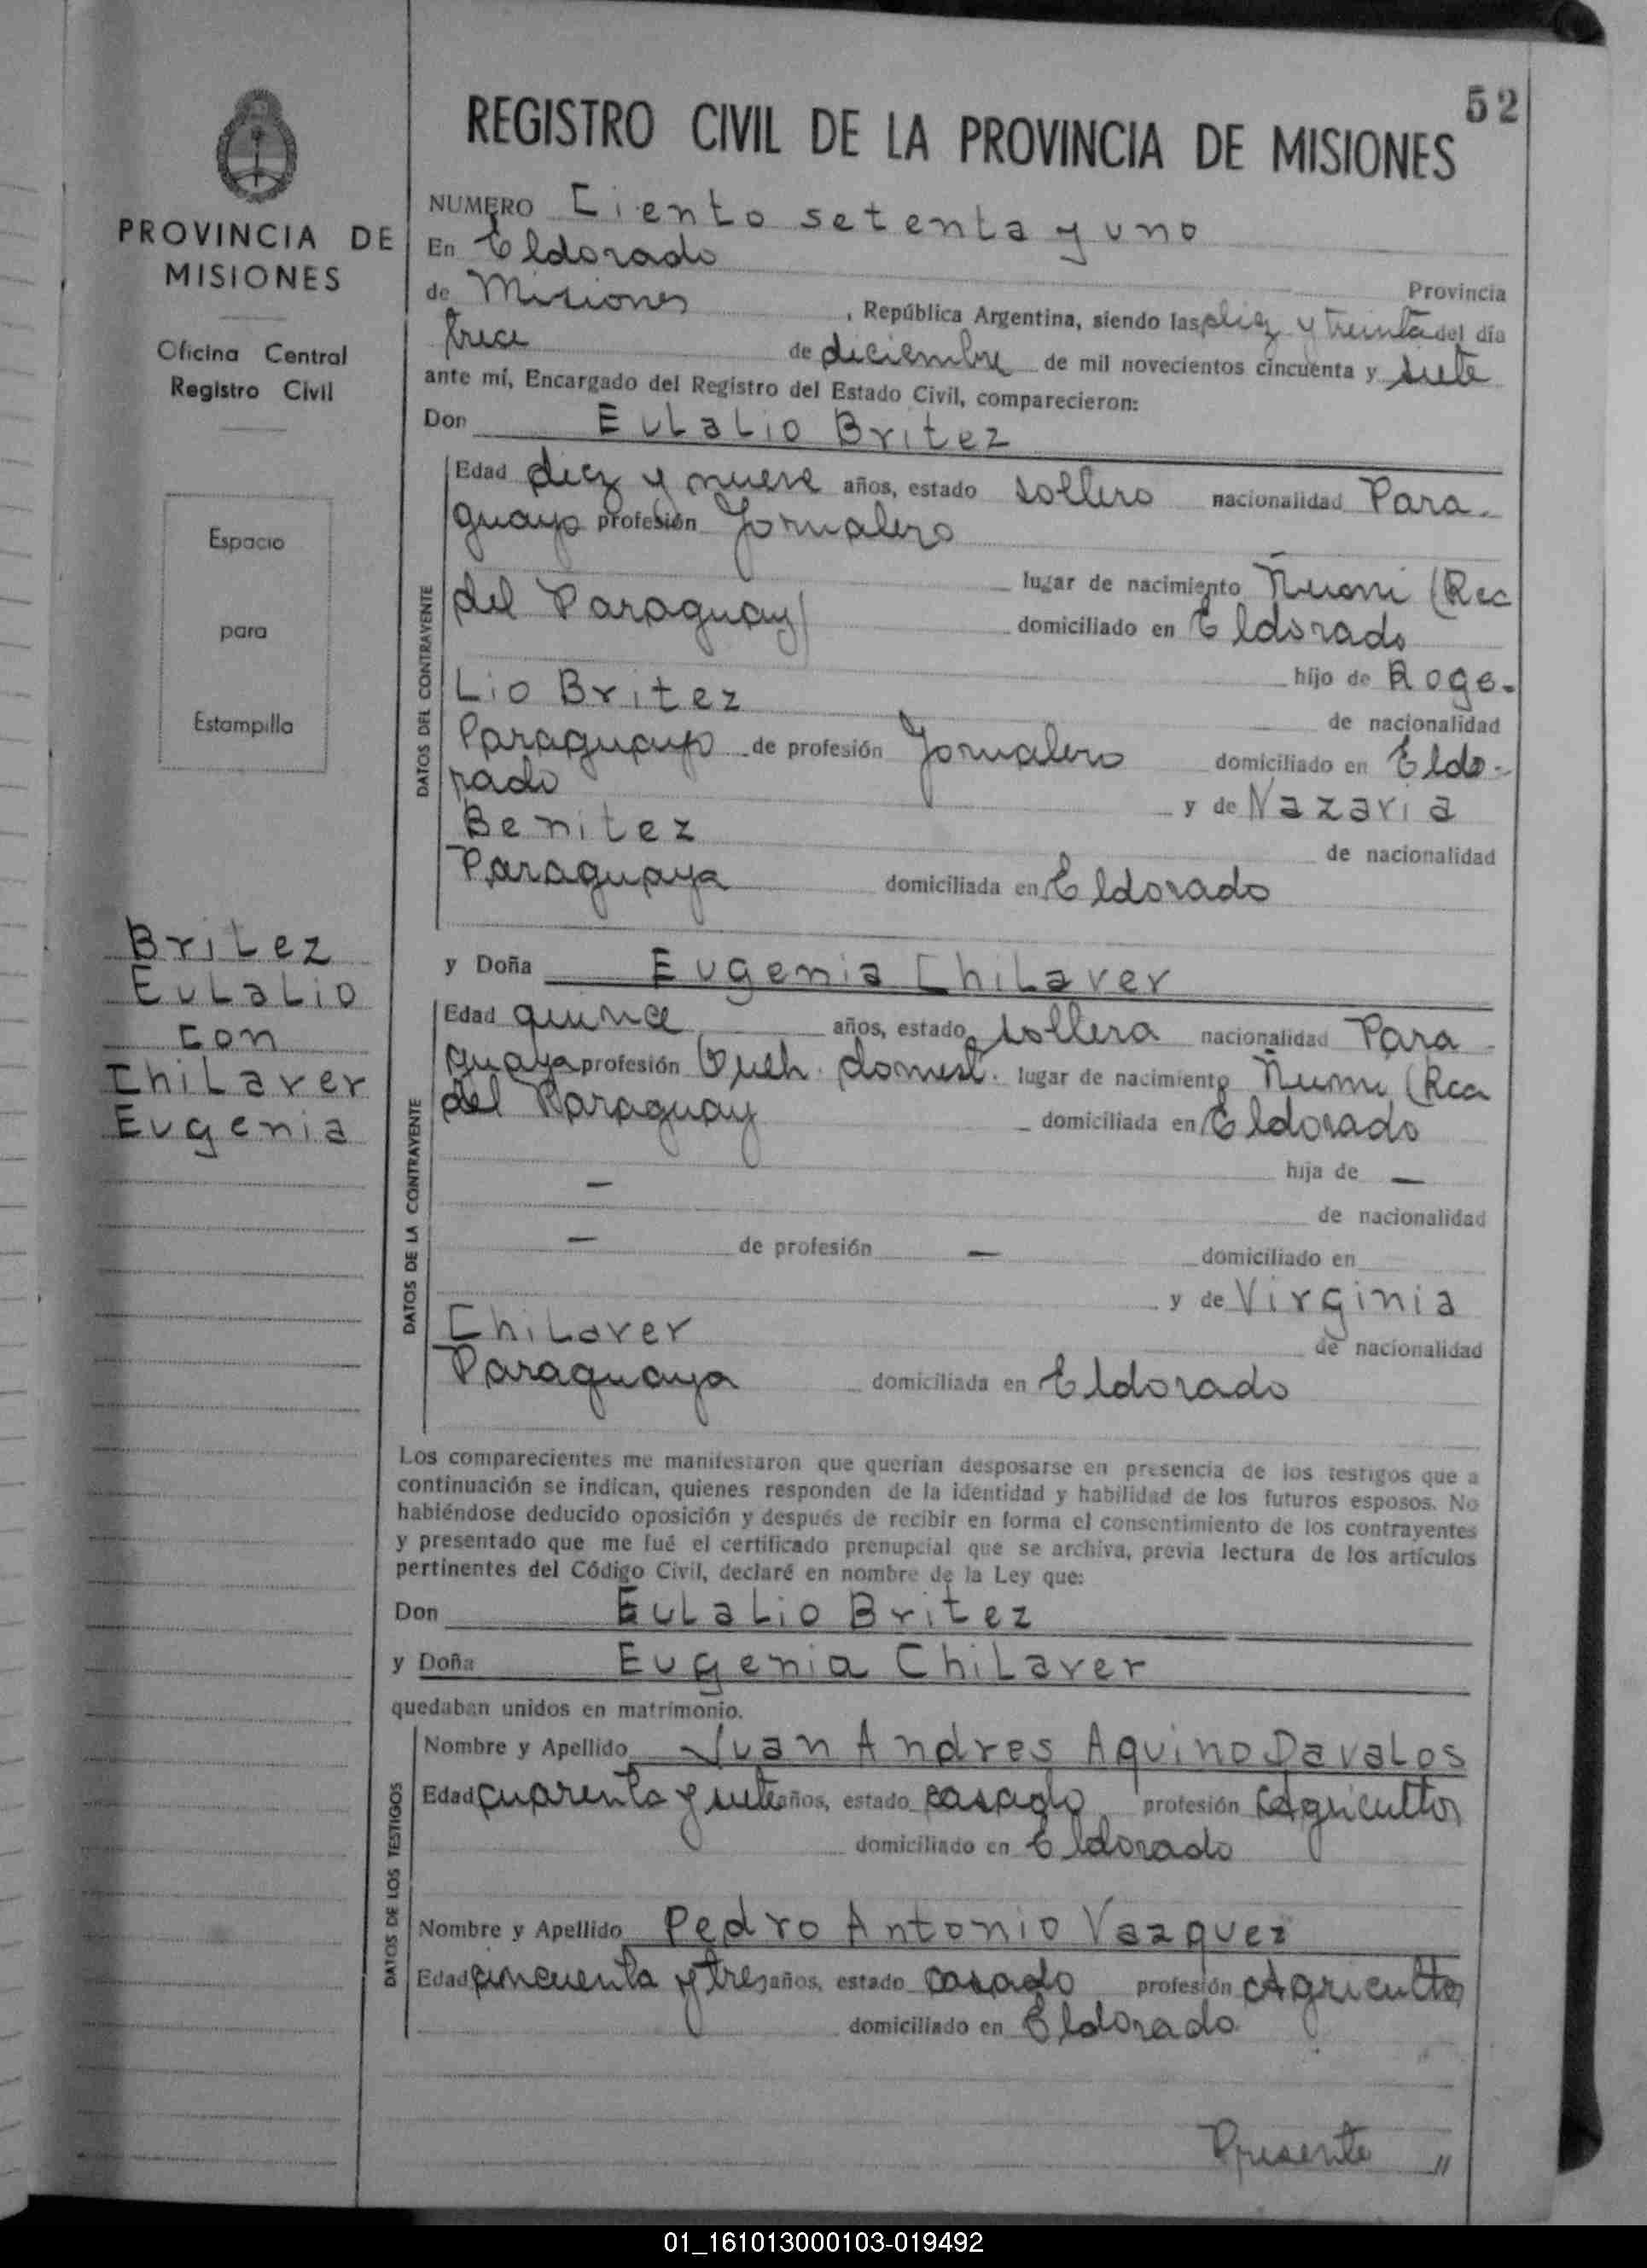 52
REGISTRO CIVIL DE LA PROVINCIA DE MISIONES
PROVINCIA DE
MISIONES
Oficina Central
Registro Civil
Espacio
para
Estampilla
Britez
Eulalio
con
Chilaver
Eugenia
NUMERO Ciento setenta y uno
En Eldorado
Provincia
de Misiones, República Argentina, siendo las diez y treinta del día
trece de diciembre de mil novecientos cincuenta y siete
ante mí, Encargado del Registro del Estado Civil, comparecieron:
Don Eulalio Britez
DATOS DEL CONTRAYENTE
Edad diez y nueve años, estado soltero nacionalidad Para-
guayo profesión Jornalero
lugar de nacimiento Ñumi (Rca
del Paraguay) domiciliado en Eldorado
hijo de Roge-
Lio Britez
de nacionalidad
Paraguayo de profesión Jornalero domiciliado en Eldo-
rado
y de Nazaria
Benitez
de nacionalidad
Paraguaya domiciliada en Eldorado
y Doña Eugenia Chilaver
DATOS DE LA CONTRAYENTE
Edad quince años, estado soltera nacionalidad Para-
guaya profesión Queh. domest. lugar de nacimiento Ñumi (Rca
del Paraguay domiciliada en Eldorado
hija de —
—
de nacionalidad
— de profesión — domiciliado en
y de Virginia
Chilaver
de nacionalidad
Paraguaya domiciliada en Eldorado
Los comparecientes me manifestaron que querían desposarse en presencia de los testigos que a
continuación se indican, quienes responden de la identidad y habilidad de los futuros esposos. No
habiéndose deducido oposición y después de recibir en forma el consentimiento de los contrayentes
y presentado que me fué el certificado prenupcial que se archiva, previa lectura de los artículos
pertinentes del Código Civil, declaré en nombre de la Ley que:
Don Eulalio Britez
y Doña Eugenia Chilaver
quedaban unidos en matrimonio.
DATOS DE LOS TESTIGOS
Nombre y Apellido Juan Andres Aquino Davalos
Edad cuarenta y siete años, estado casado profesión Agricultor
domiciliado en Eldorado
Nombre y Apellido Pedro Antonio Vazquez
Edad cincuenta y tres años, estado casado profesión Agricultor
domiciliado en Eldorado
Presente "
01_161013000103-019492